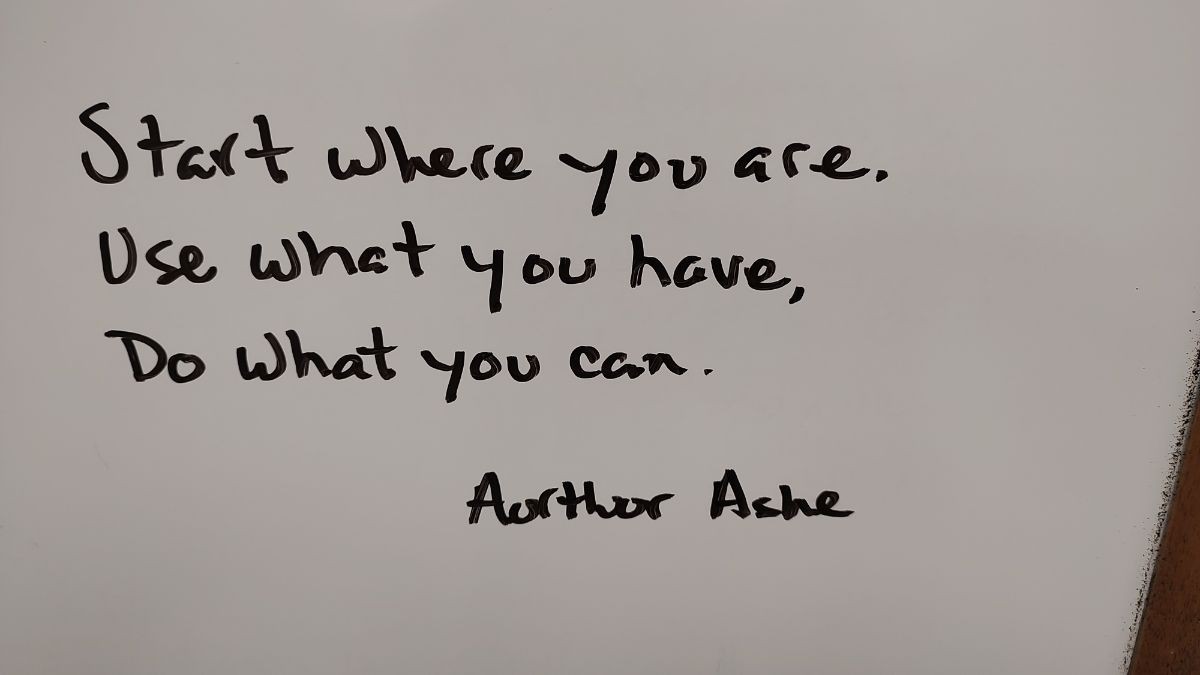 Start where you are.
Use what you have,
Do what you can.
Aurthur Ashe